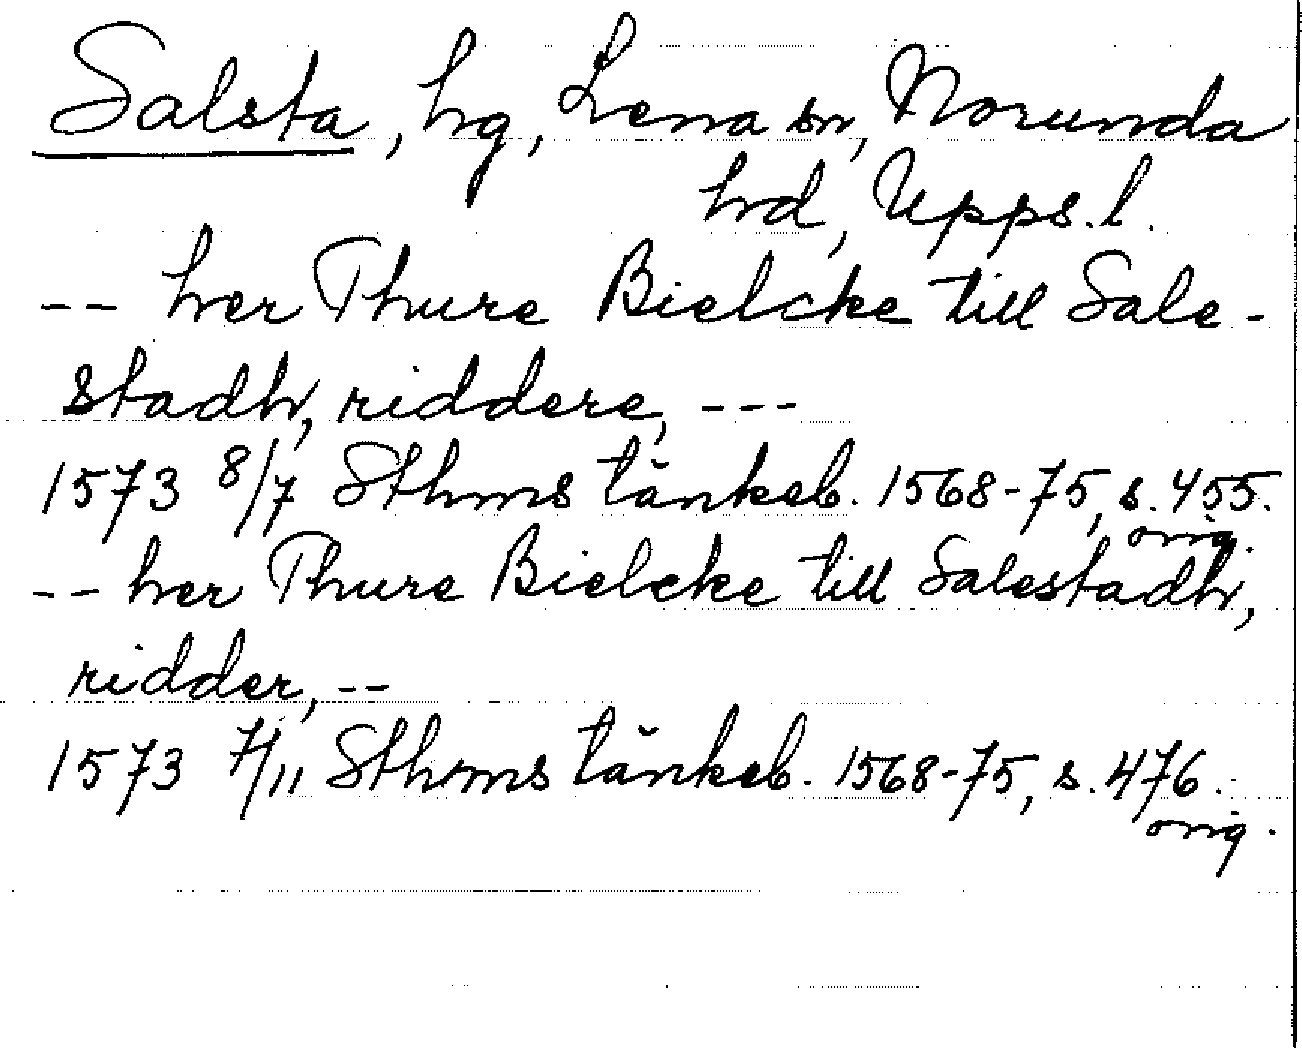 Salsta, hg, Lena sn, Norunda
hd, Upps. l.
-- her Thure Bielcke till Sale-
stadh, riddere, ---
1573 8/7 Sthms tänkeb. 1568-75, s. 455.
orig.
-- her Thure Bielcke till Salestadh,
ridder, --
1573 7/11 Sthms tänkeb. 1568-75, s. 476.
orig.